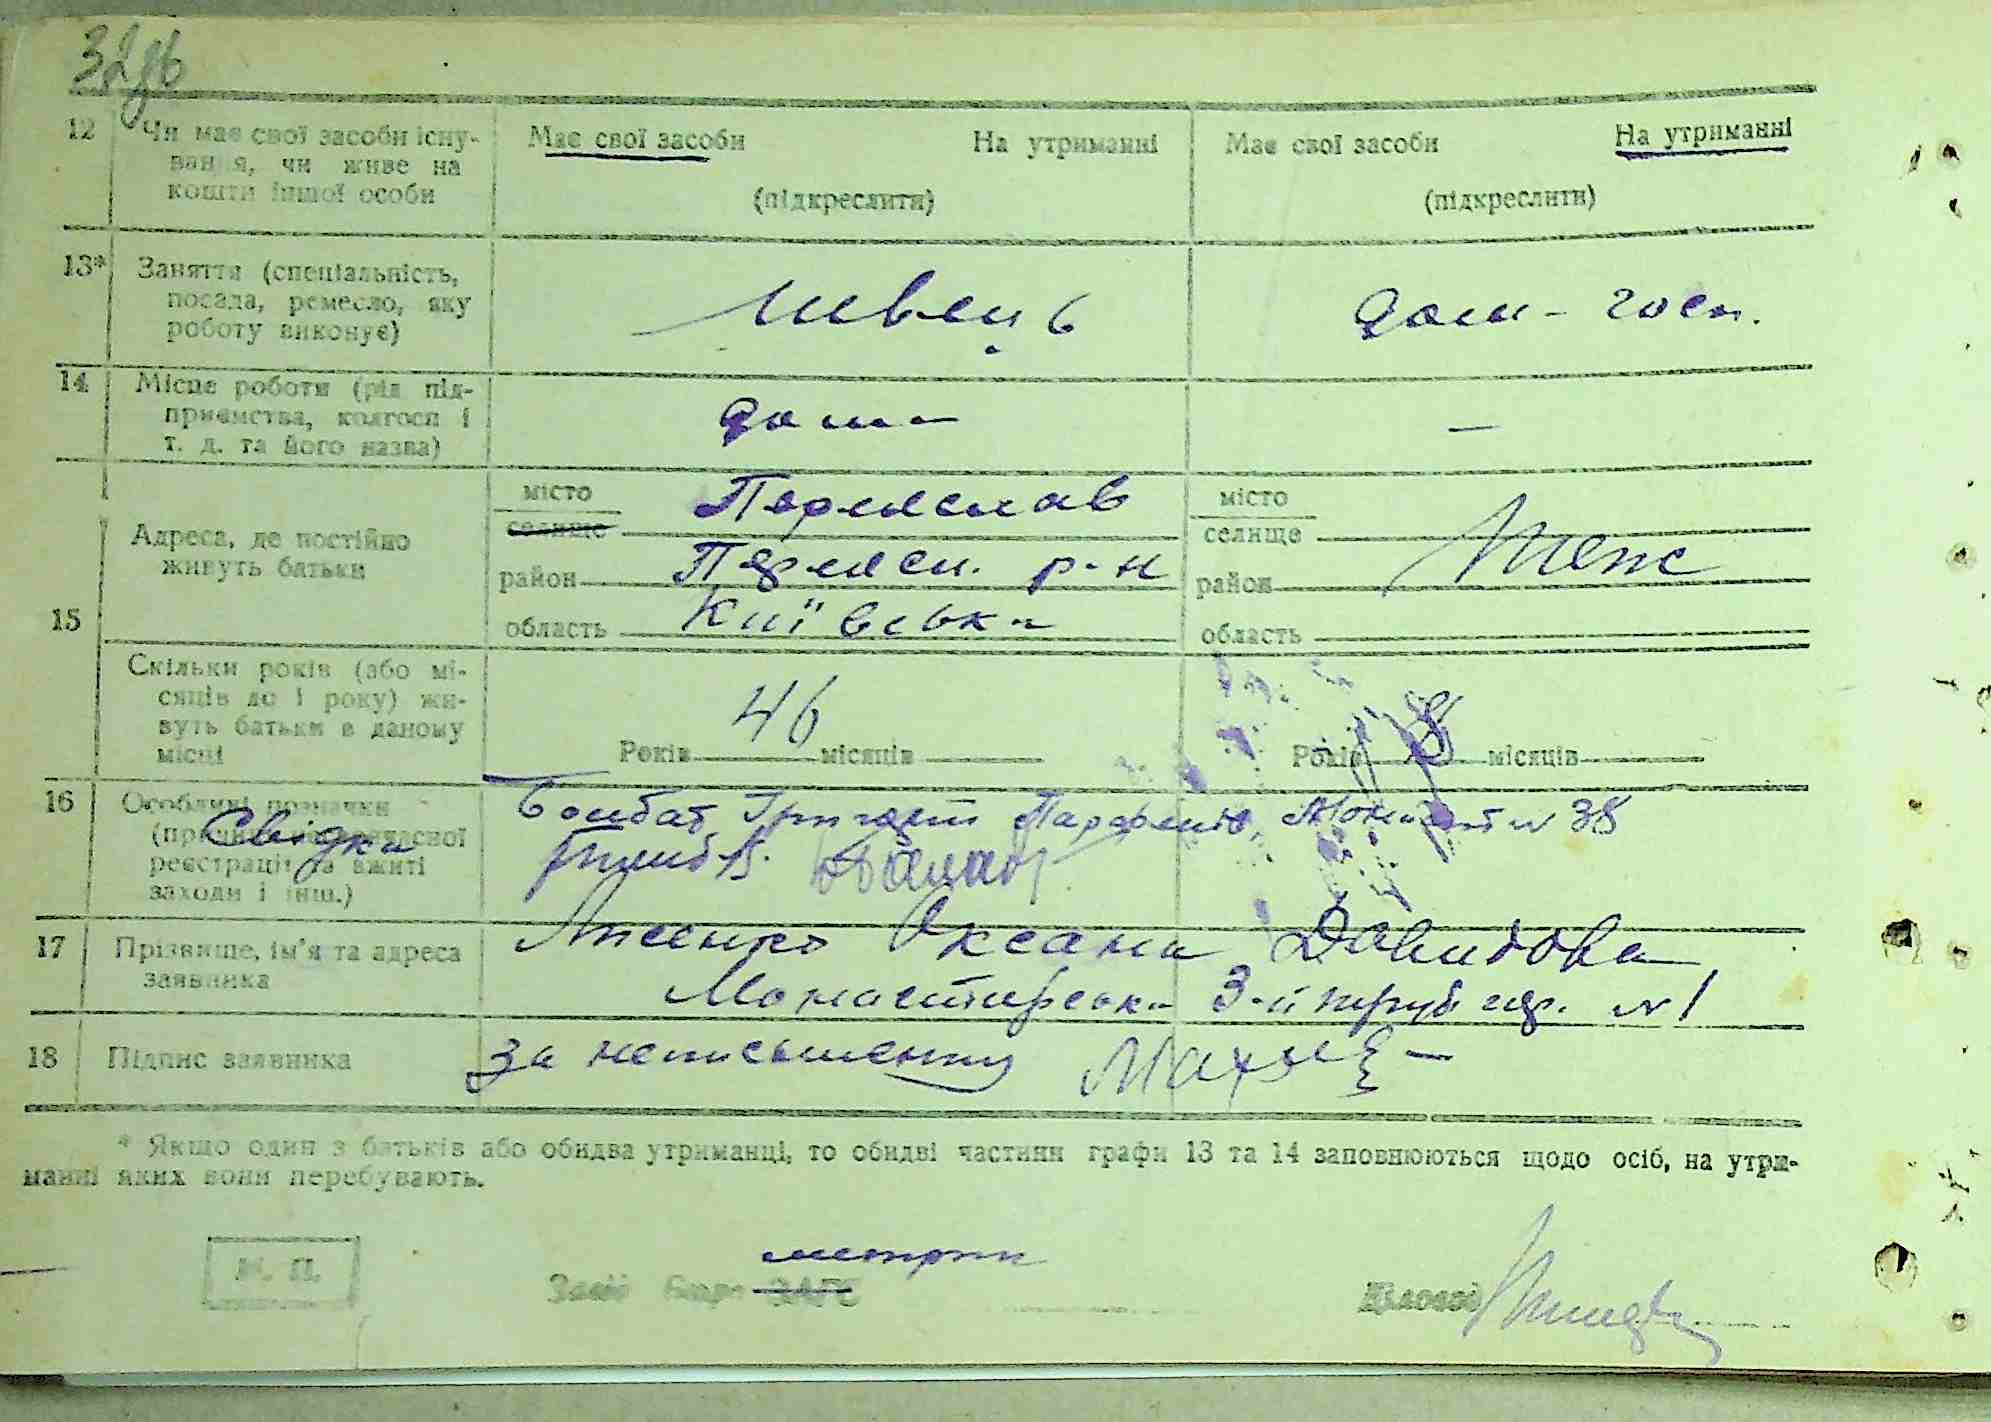 12 Чи має свої засоби існу-
вання, чи живе на
кошти іншої особи
Має свої засоби На утриманні
(підкреслити)
Має свої засоби На утриманні
(підкреслити)
13* Заняття (спеціальність,
посада, ремесло, яку
роботу виконує)
швець
дом - госп.
14 Місце роботи (рід під-
приємства, колгосп і
т. д. та його назва)
дома
—
15
Адреса, де постійно
живуть батьки
місто
селище
Переяслав
район Переясл. р-н
область Київська
місто
селище
район
теж
область
Скільки років (або мі-
сяців до 1 року) жи-
вуть батьки в даному
місці
Років 46 місяців
Років 8 місяців
16 Особливі позначки
(причини несвоєчасної
реєстрації та вжиті
заходи і інш.)
Свідки
Григорій № 38
17 Прізвище, ім'я та адреса
заявника
Лисенко Оксана Давидовна
Монастирська 3-й № 1
18 Підпис заявника
за неписьменну
* Якщо один з батьків або обидва утриманці, то обидві частини графи 13 та 14 заповнюються щодо осіб, на утри-
манні яких вони перебувають.
М. П.
метрик
Зав. бюро ЗАГС
Діловод